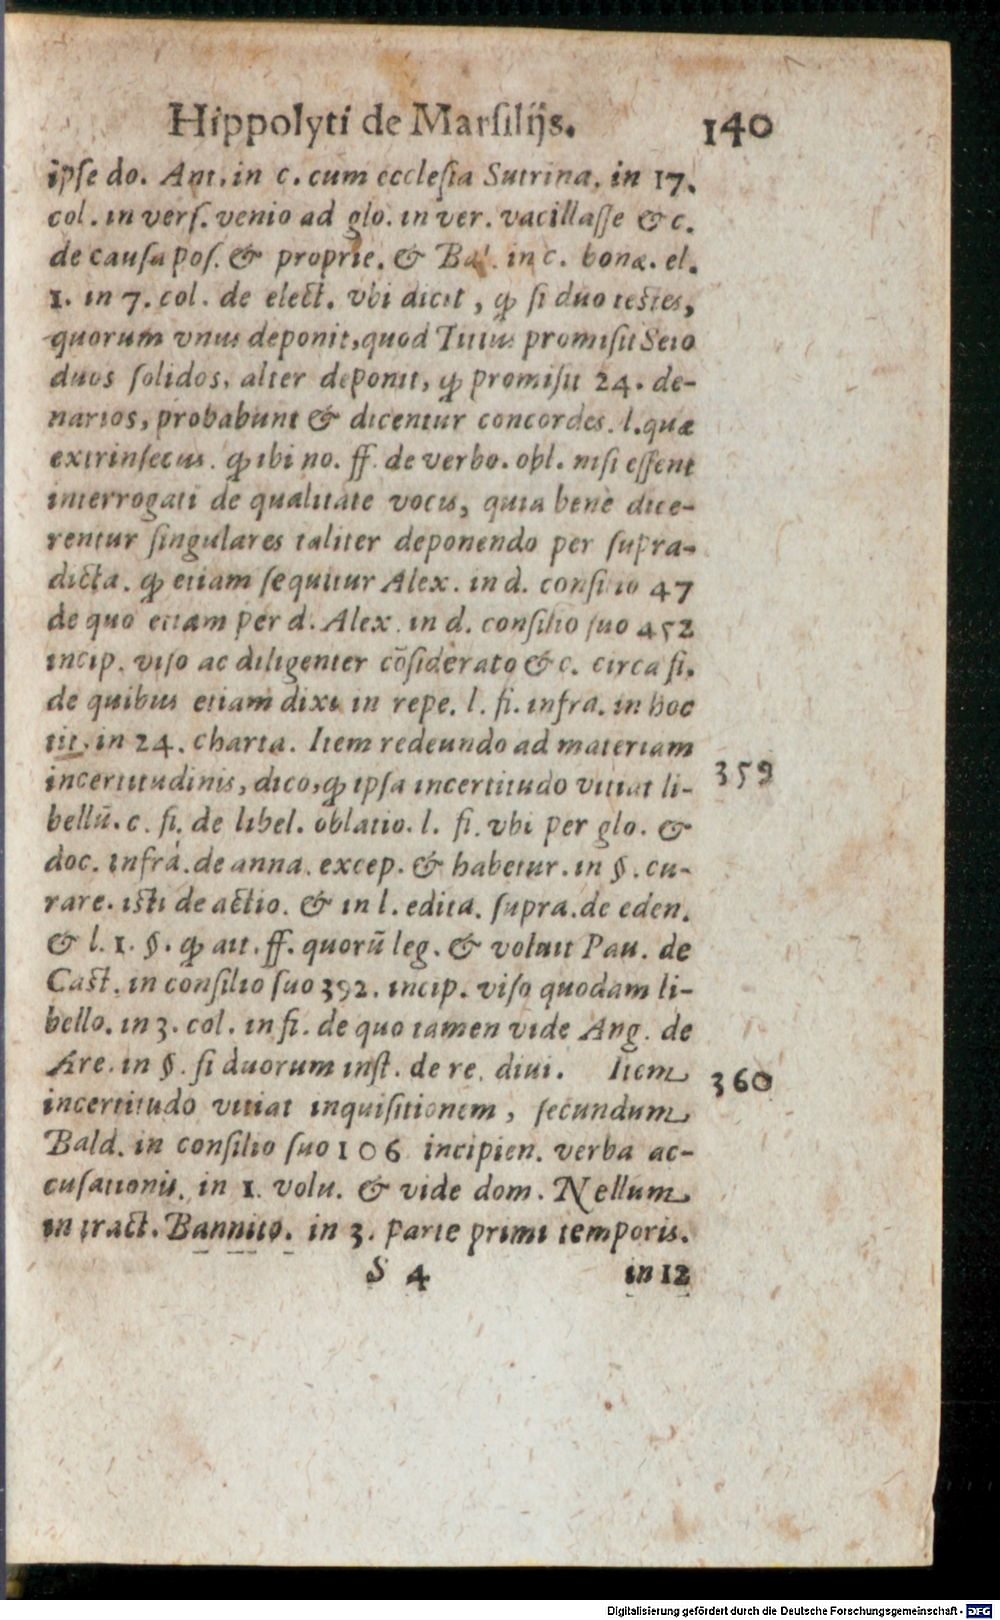 Hippolyti de Marſilijs. 140
ipſe do. Ant. in c. cum eccleſia Sutrina. in 17.
col. in verſ. venio ad glo. in ver. vacillaſſe & c.
de cauſa poſ. & proprie. & Bal. in c. bonæ. el.
1. in 7. col. de elect. vbi dicit, ꝙ ſi duo teſtes,
quorum vnus deponit, quod Titius promiſit Seio
duos ſolidos, alter deponit, ꝙ promiſit 24. de-
narios, probabunt & dicentur concordes. l. quæ
extrinſecus. ꝙ ibi no. ff. de verbo. obl. niſi eſſent
interrogati de qualitate vocis, quia bene dice-
rentur ſingulares taliter deponendo per ſupra-
dicta. ꝙ etiam ſequitur Alex. in d. conſilio 47
de quo etiam per d. Alex. in d. conſilio ſuo 452
incip. viſo ac diligenter cõſiderato & c. circa fi.
de quibus etiam dixi in repe. l. fi. infra. in hoc
tit. in 24. charta. Item redeundo ad materiam
incertitudinis, dico, ꝙ ipſa incertitudo vitiat li- 359
bellū. c. fi. de libel. oblatio. l. fi. vbi per glo. &
doc. infrá. de anna. excep. & habetur. in §. cu-
rare. iſti de actio. & in l. edita. ſupra. de eden.
& l. 1. §. ꝙ ait. ff. quorū leg. & voluit Pau. de
Caſt. in conſilio ſuo 392. incip. viſo quodam li-
bello. in 3. col. in fi. de quo tamen vide Ang. de
Are. in §. ſi duorum inſt. de re. diui. Item
incertitudo vitiat inquiſitionem, ſecundum 360
Bald. in conſilio ſuo 106 incipien. verba ac-
cuſationis. in 1. volu. & vide dom. Nellum
in tract. Bannito. in 3. parte primi temporis.
S 4 in 12
Digitalisierung gefördert durch die Deutsche Forschungsgemeinschaft - DFG